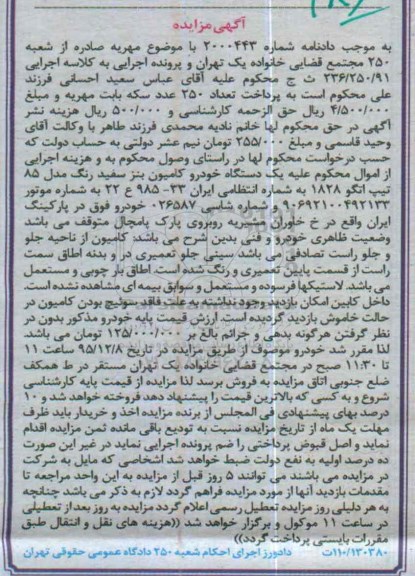 آگهی مزایده
به موجب دادنامه شماره ۲۰۰۰۴۴۳ با موضوع مهریه صادره از شعبه
۲۵۰ مجتمع قضایی خانواده یک تهران و پرونده اجرایی به کلاسه اجرایی
۲۳۶/۲۵۰/۹۱ ث ج محکوم علیه آقای عباس سعید احسانی فرزند
علی محکوم است به پرداخت تعداد ۲۵۰ عدد سکه بابت مهریه و مبلغ
۴/۵۰۰/۰۰۰ ریال حق الزحمه کارشناسی و ۵۰۰/۰۰۰ ریال هزینه نشر
آگهی در حق محکوم لها خانم نادیه محمدی فرزند طاهر با وکالت آقای
وحید قاسمی و مبلغ ۲۵۵/۰۰۰ تومان نیم عشر دولتی به حساب دولت که
حسب درخواست محکوم لها در راستای وصول محکوم به و هزینه اجرایی
از اموال محکوم علیه یک دستگاه خودرو کامیون بنز سفید رنگ مدل ۸۵
تیپ اتگو ۱۸۲۸ به شماره انتظامی ایران ۳۳- ۹۸۵ ع ۲۲ به شماره موتور
۹۰۶۹۲۱۰۰۴۹۲۱۳۳ و شماره شاسی ۰۲۶۵۸۷ خودرو فوق در پارکینگ
ایران واقع در خ خاوران روبروی پارک پامچال متوقف می باشد
وضعیت ظاهری خودرو و فنی بدین شرح می باشد: کامیون از ناحیه جلو
و جلو راست تصادفی می باشد سینی جلو تعمیری در و بدنه اطاق سمت
راست از قسمت پایین تعمیری و رنگ شده است. اطاق بار چوبی و مستعمل
می باشد. لاستیکها فرسوده و مستعمل و سوابق بیمه ای مشاهده نشده است.
داخل کابین امکان بازدید وجود نداشته به علت فاقد سوئیچ بودن کامیون در
حالت خاموش بازدید گردیده است. ارزش قیمت پایه خودرو مذکور بدون در
نظر گرفتن هرگونه بدهی و جرائم بالغ بر ۱۲۵/۰۰۰/۰۰۰ تومان می باشد.
لذا مقرر شد خودرو موصوف از طریق مزایده در تاریخ ۹۵/۱۲/۸ ساعت ۱۱
تا ۱۱:۳۰ صبح در مجتمع قضایی خانواده یک تهران مستقر در ط همکف
ضلع جنوبی اتاق مزایده به فروش برسد لذا مزایده از قیمت پایه کارشناسی
شروع و به کسی که بالاترین قیمت را پیشنهاد دهد فروخته خواهد شد و ۱۰
درصد بهای پیشنهادی فی المجلس از برنده مزایده اخذ و خریدار باید ظرف
مهلت یک ماه از تاریخ مزایده نسبت به تودیع باقی مانده ثمن مزایده اقدام
نماید و اصل قبوض پرداختی را ضم پرونده اجرایی نماید در غیر این صورت
ده درصد اولیه به نفع دولت ضبط خواهد شد اشخاصی که مایل به شرکت
در مزایده می باشند می توانند ۵ روز قبل از مزایده به این واحد مراجعه تا
مقدمات بازدید آنها از مورد مزایده فراهم گردد لازم به ذکر می باشد چنانچه
به هر دلیلی روز مزایده تعطیل رسمی اعلام گردد مزایده به روز بعد از تعطیلی
در ساعت ۱۱ موکول و برگزار خواهد شد ((هزینه های نقل و انتقال طبق
مقررات بایستی پرداخت گردد))
۱۱۰/۱۳۰۳۸۰ت دادورز اجرای احکام شعبه ۲۵۰ دادگاه عمومی حقوقی تهران